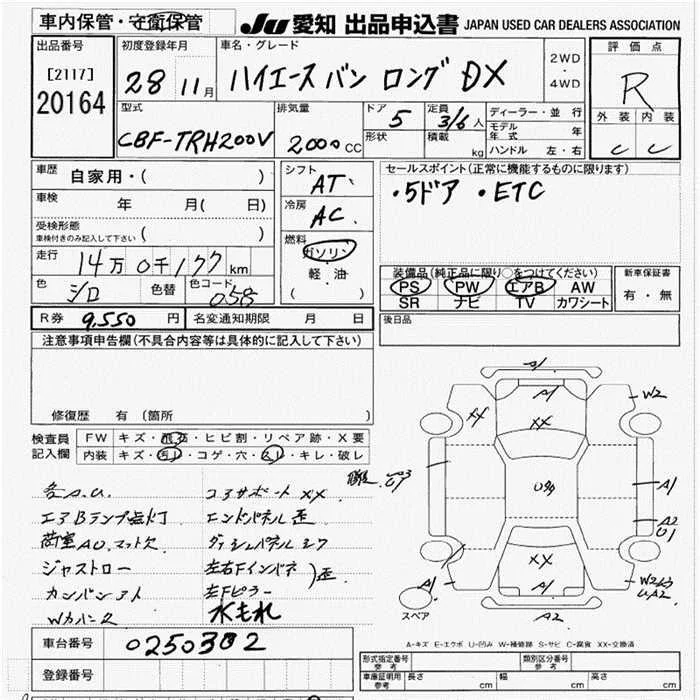 車内保管・守衛保管
JU 愛知 出品申込書 JAPAN USED CAR DEALERS ASSOCIATION
出品番号
[2117]
20164
初度登録年月
28 11月
車名・グレード
ハイエース バン ロング DX
2WD
・
4WD
評価点
R
外装 内装
C C
型式
CBF-TRH200V
排気量
2000CC
ドア 5
形状
定員 3/6人
積載 kg
ディーラー・並行
モデル年式 年
ハンドル 左・右
車歴
自家用・( )
車検
年 月( 日)
受検形態
車検付きのみ記入して下さい ( )
走行
14万0千177km
色 シロ 色替 色コード 058
シフト
AT
冷房
AC
燃料
ガソリン
軽・油
( )
セールスポイント(正常に機能するものに限ります)
・5ドア ・ETC
装備品(純正品に限り○をつけてください)
PS PW エアB AW
SR ナビ TV カワシート
新車保証書
有・無
R券 9,550 円 名変通知期限 月 日
後日品
注意事項申告欄(不具合内容等は具体的に記入して下さい)
修復歴 有(箇所 )
検査員
記入欄
FW キズ・飛石・ヒビ割・リペア跡・X要
内装 キズ・汚レ・コゲ・穴・スレ・キレ・破レ
各A.U.
エアBランプ点灯
荷室AU、マット欠
ジャストロー
カンバンアト
Wカバーク
コアサポートXX
エンドパネル歪
ダッシュパネル
左右Fインパネ)歪
左Fピラー
水もれ
A1
A1
W2
XX
XX
U94
A1
A2
U1
XX
A1
A1
A2
スペア
A-キズ E-エクボ U-凹み W-補修跡 S-サビ C-腐食 XX-交換済
車台番号 0250302
登録番号
形式指定番号
参考
類別区分番号
参考
車庫証明用
参考
長さ cm 幅 cm 高さ cm